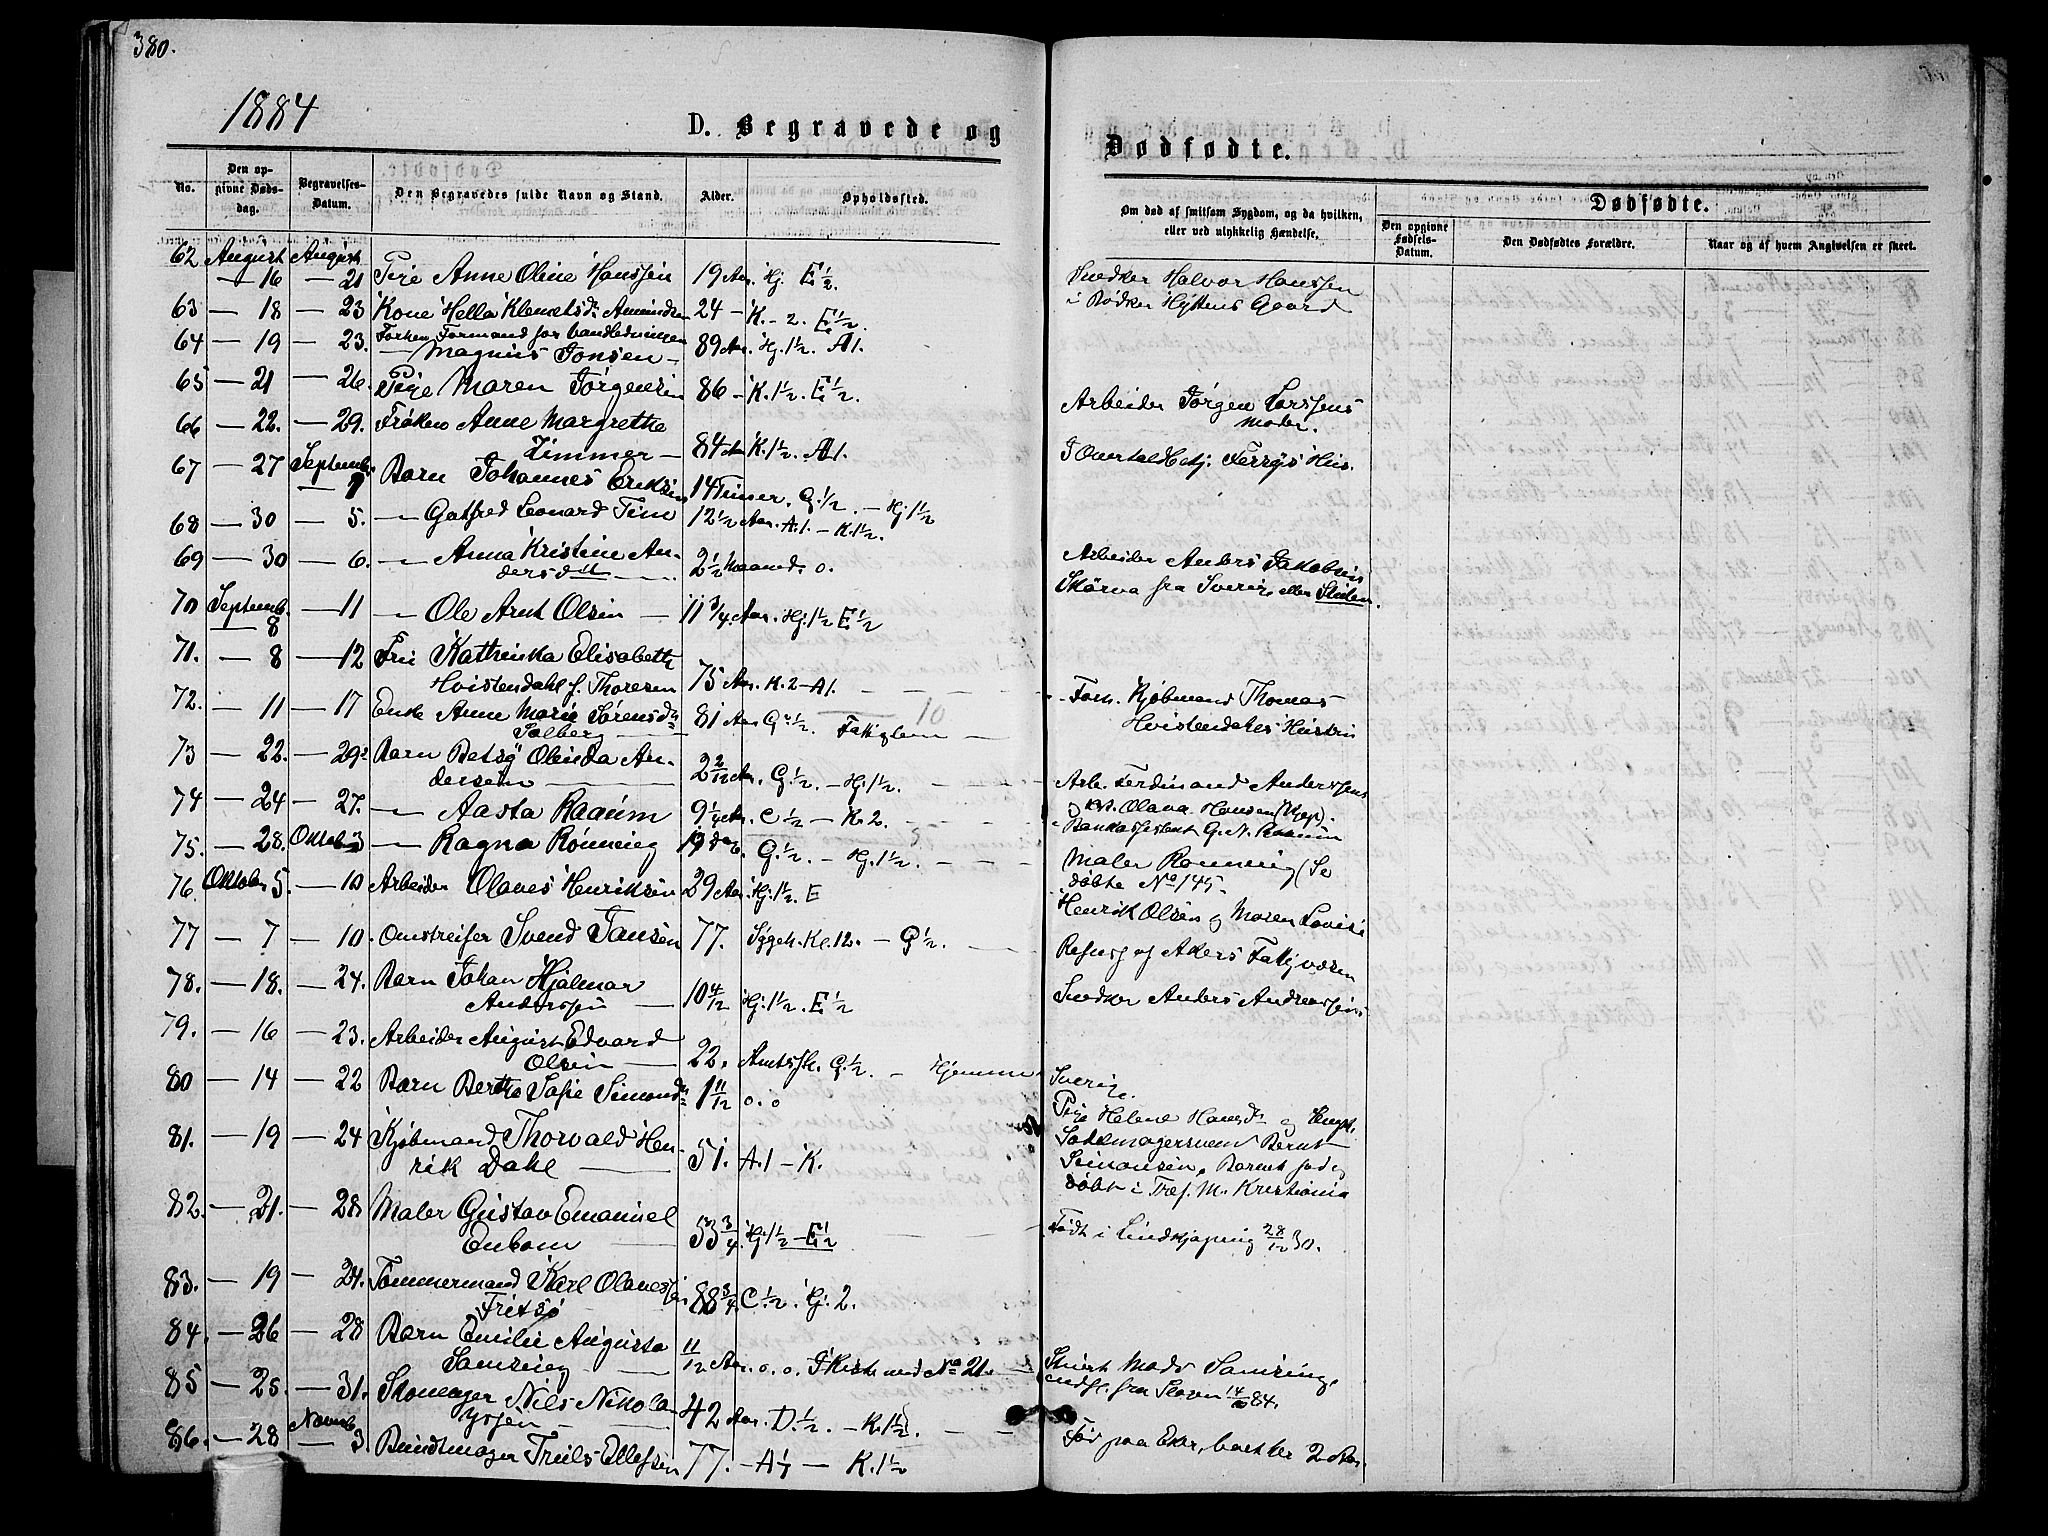 380.
1884
D. Begravede og
Dødfødte.
No.
Den opgivne Døds-dag.
Begravelses-Datum.
Den Begravedes fulde Navn og Stand.
Alder.
Opholdssted.
Om død af smitsom Sygdom, og da hvilken, eller ved ulykkelig Hændelse.
Dødfødte.
Den opgivne Fødsels-Datum.
Den Dødfødtes Forældre.
Naar og af hvem Angivelsen er skeet.
62 August August
— 16 — 21 Pige Anne Oline Hanssen 19 Aar. Hj. E½. Snedker Halvor Hanssen
i Bødker Hyttens Gaard
63 — 18 — 23 Kone Hella Klemetsdr Amundsen 24 — K. 2. E½.
64 — 19 — 23. Formand for Vandledningen
— Magnus Jonsen — 89 Aar. Hj. 1½. A1.
65 — 21 — 26. Pige Maren Jørgensen 86 — K. 1½. E½. Arbeider Jørgen Larssens
Moder.
66 — 22. — 29. Frøken Anne Margrethe
Zimmer — 84 Aar K. 1½. A1.
67 — 27 Septemb. — 1 Barn Johannes Eriksen 14 Timer. G. ½. — Hj. 1½
68 — 30 — 5. — Gotfred Leonard Tim 12½ Aar. A. 1. — K. 1½.
69 — 30 — 6. — Anna Kristine An-
dersdtr 2½ Maaned. o. Arbeider Anders Jakobsen
Skårva fra Sverig, eller Skien.
70 Septemb. — 8 — 11 — Ole Arnt Olsen — 11¾ Aar. Hj. 1½ E½
71. — 8 — 12 Fru Kathrinka Elisabeth
Hvistendahl f. Thoresen 75 Aar. K. 2 — A1. Forh. Kjøbmand Thomas
Hvistendahls Hustru
72. — 11 — 17 Enke Anne Marie Sørensdr
Solberg 81 Aar G. ½. Fattiglem — 10
73 — 22. — 29 Barn Betsy Olinda An-
dersen 2 2/12 Aar. G. ½. — Hj. 1½. Arb. Ferdinand Anderssens
og Olava Hansen
74 — 24 — 27. — Aasta Raaum 9¼ Aar. C ½ — K. 2. Bankassistent G. N. Raaum
75. — 28. Oktob. 3 — Ragna Rønning 13 Dag. G. ½. — Hj. 1½. Maler Rønning (Se
døbte No 145.
76. Oktober 5. — 10 Arbeider Olaves Henriksen 29 Aar. Hj. 1½. E Henrik Olsen og Maren Lovise
77 — 7 — 10. Omstreifer Svend Jansen 77. Sygeh. Kl. 12. — G½. Refus. af Akers Fattigvæsen
78. — 18. — 24. Barn Johan Hjalmar
Anderssen 10 4/12 Hj. 1½. E½ Snedker Anders Andreassens
79. — 16 — 23. Arbeider August Edvard
Olsen 22. Amtssh. G. ½. — Hjemme Sverig.
80 — 14 — 22 Barn Bertha Sofie Simonsdr 1 11/12 o. o Pige Helene Hansdr og Ungk.
Sadelmagersvend Bernt
Simonsen. Barnet fød og
døbt i Tref. M. Kristiania
81. — 19 — 24 Kjøbmand Thorvald Hen-
rik Dahl 51. A. 1 — K.
82. — 21. — 28 Maler Gustav Emanuel
Enbom 53¾ Hj. 1½ — E½ Født i Lindkjøping 28/12 30.
83. — 19 — 24. Tømmermand Karl Olavessen
Fritsø 88¾. C ½. Hj. 2.
84. — 26 — 28 Barn Emilie Augusta
Samsing 11/12 Aar. o. o. I Kiste med No 21. Stuert Mads Samsing,
indfl. fra Slaven 84.
85 — 25. — 31. Skomager Nils Nikola-
yssen 42 Aar. D. ½. — K. 1½.
86. — 28 Novemb. — 3 Bundtmager Truls Ellefsen 77. — A 1 — K. 1½ Før paa Eker, her 2 Aar.